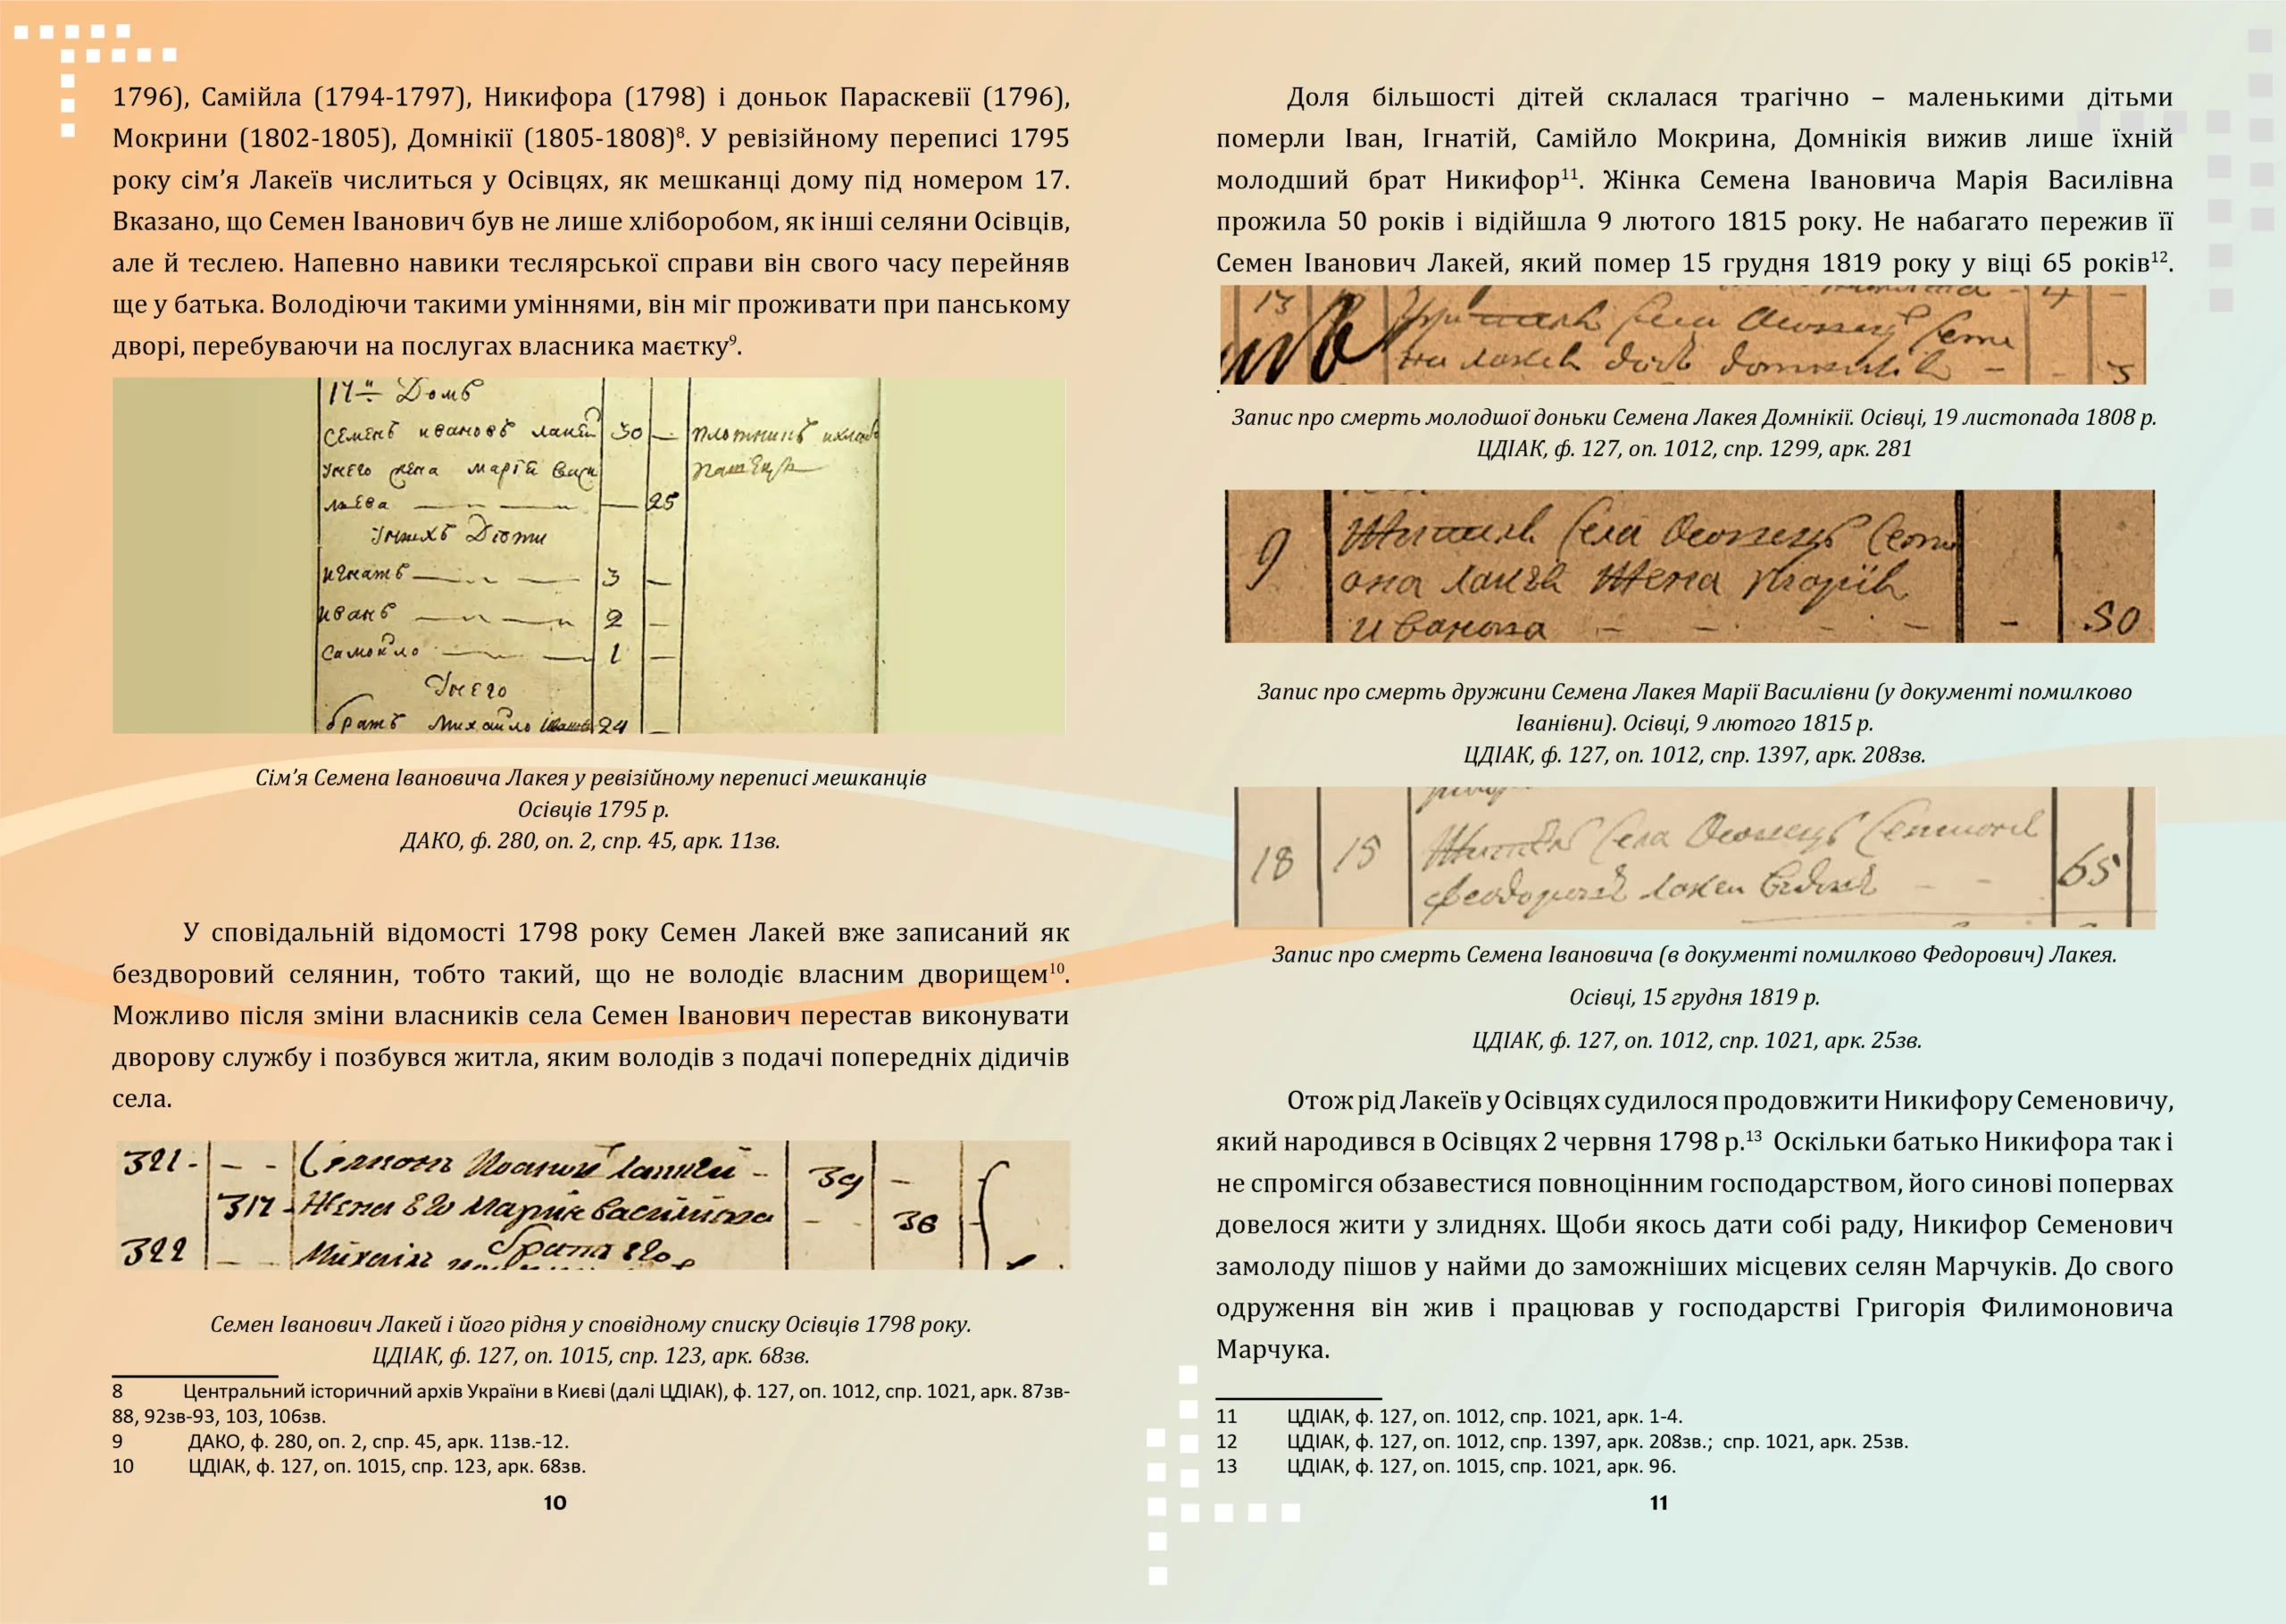 1796), Самійла (1794-1797), Никифора (1798) і доньок Параскевії (1796),
Мокрини (1802-1805), Домнікії (1805-1808)⁸. У ревізійному переписі 1795
року сім’я Лакеїв числиться у Осівцях, як мешканці дому під номером 17.
Вказано, що Семен Іванович був не лише хліборобом, як інші селяни Осівців,
але й теслею. Напевно навики теслярської справи він свого часу перейняв
ще у батька. Володіючи такими уміннями, він міг проживати при панському
дворі, перебуваючи на послугах власника маєтку⁹.
Домъ
Семенъ Ивановъ 30 —
Унего жена
— 25
Унихъ
Игнатъ — 3 —
Иванъ — 2 —
Самойло — 1 —
Унего
братъ Михайло 24
Сім’я Семена Івановича Лакея у ревізійному переписі мешканців
Осівців 1795 р.
ДАКО, ф. 280, оп. 2, спр. 45, арк. 11зв.
У сповідальній відомості 1798 року Семен Лакей вже записаний як
бездворовий селянин, тобто такий, що не володіє власним дворищем¹⁰.
Можливо після зміни власників села Семен Іванович перестав виконувати
дворову службу і позбувся житла, яким володів з подачі попередніх дідичів
села.
321 - - - 39 -
317 Жена его Мария - 36
322 - - брат его
Семен Іванович Лакей і його рідня у сповідному списку Осівців 1798 року.
ЦДІАК, ф. 127, оп. 1015, спр. 123, арк. 68зв.
8 Центральний історичний архів України в Києві (далі ЦДІАК), ф. 127, оп. 1012, спр. 1021, арк. 87зв-
88, 92зв-93, 103, 106зв.
9 ДАКО, ф. 280, оп. 2, спр. 45, арк. 11зв.-12.
10 ЦДІАК, ф. 127, оп. 1015, спр. 123, арк. 68зв.
10
Доля більшості дітей склалася трагічно – маленькими дітьми
померли Іван, Ігнатій, Самійло Мокрина, Домнікія вижив лише їхній
молодший брат Никифор¹¹. Жінка Семена Івановича Марія Василівна
прожила 50 років і відійшла 9 лютого 1815 року. Не набагато пережив її
Семен Іванович Лакей, який помер 15 грудня 1819 року у віці 65 років¹².
13 села
.
Запис про смерть молодшої доньки Семена Лакея Домнікії. Осівці, 19 листопада 1808 р.
ЦДІАК, ф. 127, оп. 1012, спр. 1299, арк. 281
9 села
жена
- - - - - 50
Запис про смерть дружини Семена Лакея Марії Василівни (у документі помилково
Іванівни). Осівці, 9 лютого 1815 р.
ЦДІАК, ф. 127, оп. 1012, спр. 1397, арк. 208зв.
18 15 села
- - 65
Запис про смерть Семена Івановича (в документі помилково Федорович) Лакея.
Осівці, 15 грудня 1819 р.
ЦДІАК, ф. 127, оп. 1012, спр. 1021, арк. 25зв.
Отож рід Лакеїв у Осівцях судилося продовжити Никифору Семеновичу,
який народився в Осівцях 2 червня 1798 р.¹³ Оскільки батько Никифора так і
не спромігся обзавестися повноцінним господарством, його синові попервах
довелося жити у злиднях. Щоби якось дати собі раду, Никифор Семенович
замолоду пішов у найми до заможніших місцевих селян Марчуків. До свого
одруження він жив і працював у господарстві Григорія Филимоновича
Марчука.
11 ЦДІАК, ф. 127, оп. 1012, спр. 1021, арк. 1-4.
12 ЦДІАК, ф. 127, оп. 1012, спр. 1397, арк. 208зв.; спр. 1021, арк. 25зв.
13 ЦДІАК, ф. 127, оп. 1015, спр. 1021, арк. 96.
11